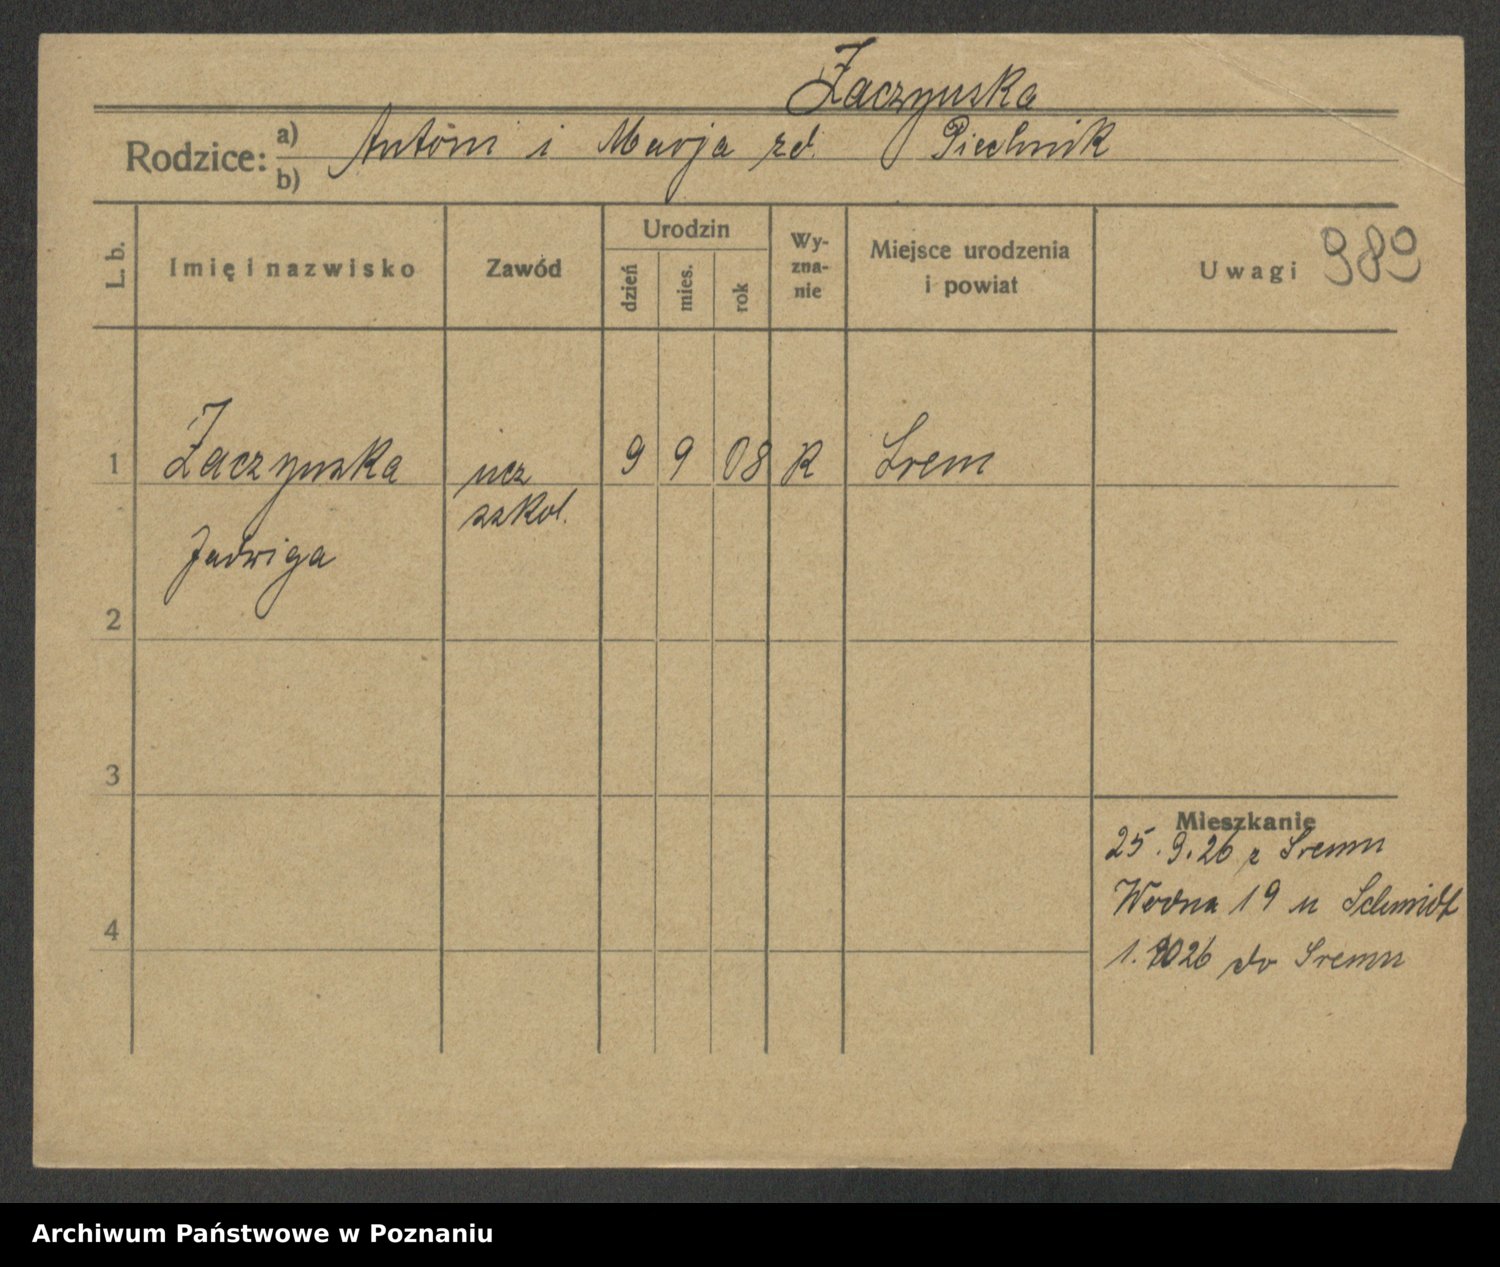 Żaczynska
Rodzice: a) Antoni i Marja zd. Piechnik
b)
L. b. Imię i nazwisko Zawód Urodzin dzień mies. rok Wy-zna-nie Miejsce urodzenia i powiat Uwagi 989
1 Żaczynska ucz 9 9 08 R Srem
szkol.
Jadwiga
2
3
Mieszkanie
25.9.26 z Sremu
Wodna 19 u Schmidt
4
1.1026 do Sremu
Archiwum Państwowe w Poznaniu